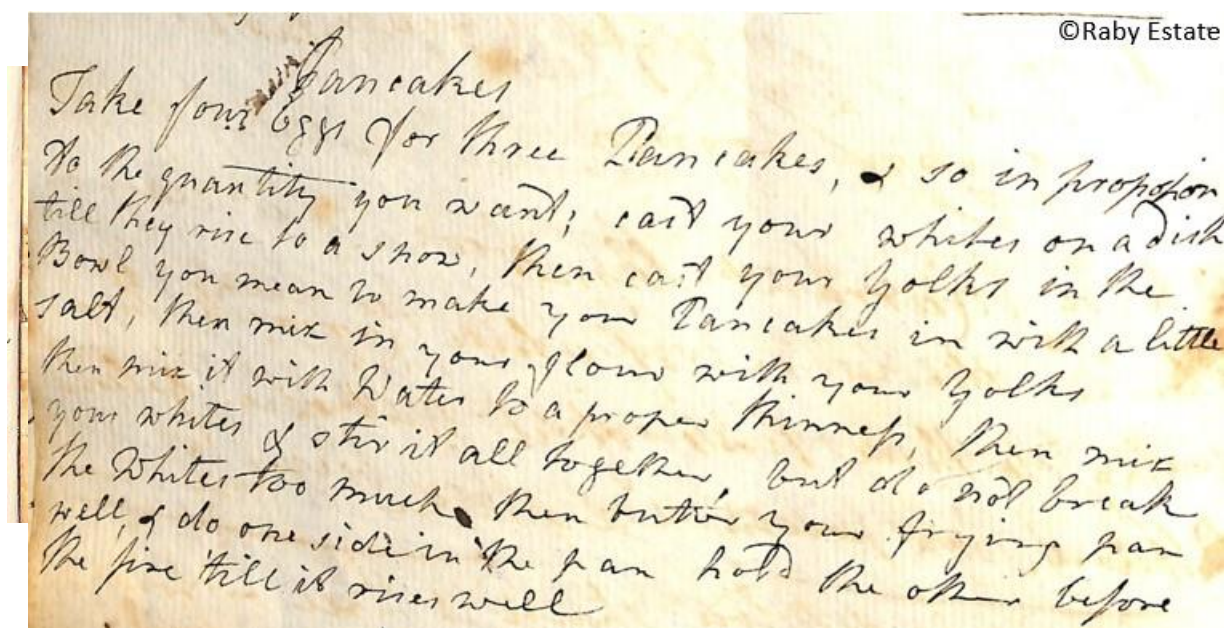 ©Raby Estate
Pancakes
Take four Eggs for three Pancakes, & so in propotion
to the quantity you want; cast your whites on a dish
till they rise to a snow, then cast your Yolks in the
Bowl you mean to make your Pancakes in with a little
salt, then mix in your flour with your Yolks
then mix it with Water to a proper thinness, then mix
your whites & stir it all together, but do not break
the Whites too much then butter your frying pan
well, & do one side in the pan hold the other before
the fire till it rises well